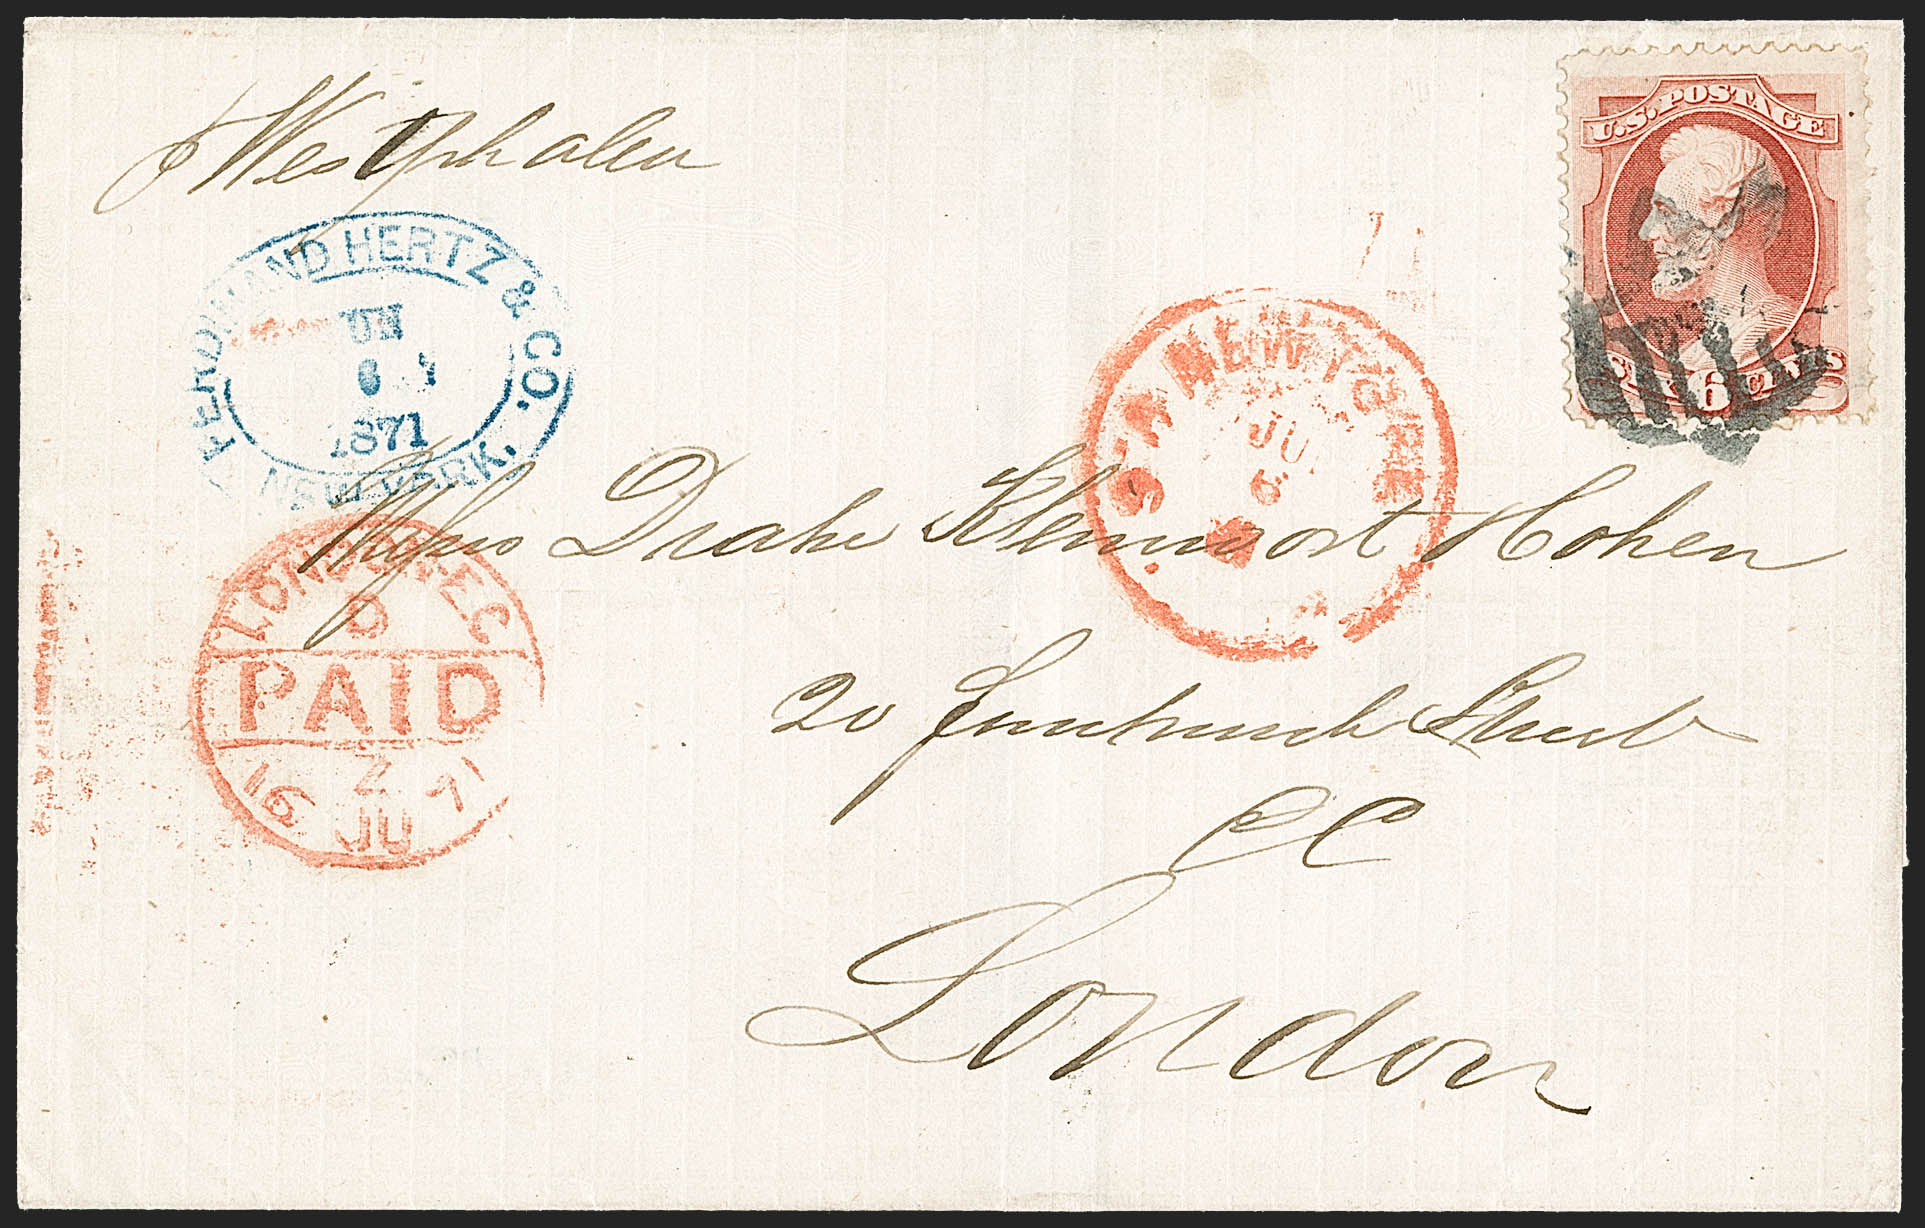 Westphalen
U.S. POSTAGE
SIX 6 CENTS
FERDINAND HERTZ & CO.
JUN
6
1871
NEW YORK.
NEW YORK
JU
6
Messrs Drake Kleinwort & Cohen
20 Fenchurch Street
EC
London
LONDON EC
D
PAID
Z
16 JU 71